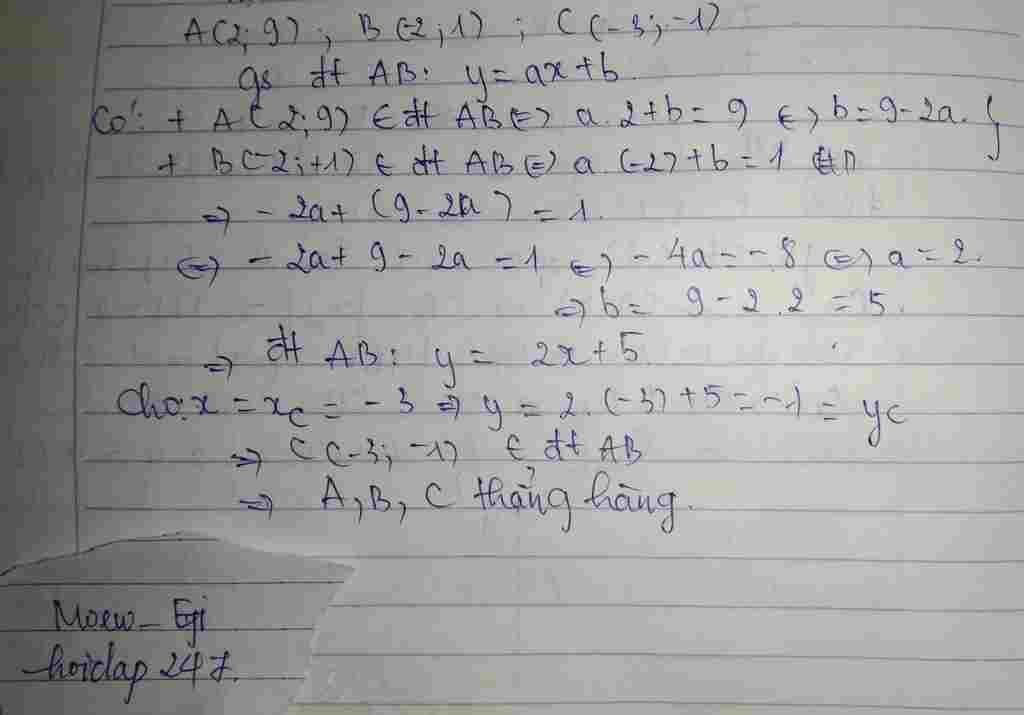 A(2; 9) ; B(-2; 1) ; C(-3; -1)
gs đt AB: y = ax + b.
Có: + A(2; 9) ∈ đt AB ⇔ a.2 + b = 9 ⇔ b = 9 - 2a. }
+ B(-2; +1) ∈ đt AB ⇔ a.(-2) + b = 1
⇒ - 2a + (9 - 2a) = 1.
⇔ - 2a + 9 - 2a = 1 ⇔ - 4a = - 8 ⇔ a = 2.
⇒ b = 9 - 2.2 = 5.
⇒ đt AB: y = 2x + 5.
Cho: x = xC = - 3 ⇒ y = 2.(-3) + 5 = -1 = yC
⇒ C(-3; -1) ∈ đt AB
⇒ A, B, C thẳng hàng.
Moew - Egi
hoidap 247.